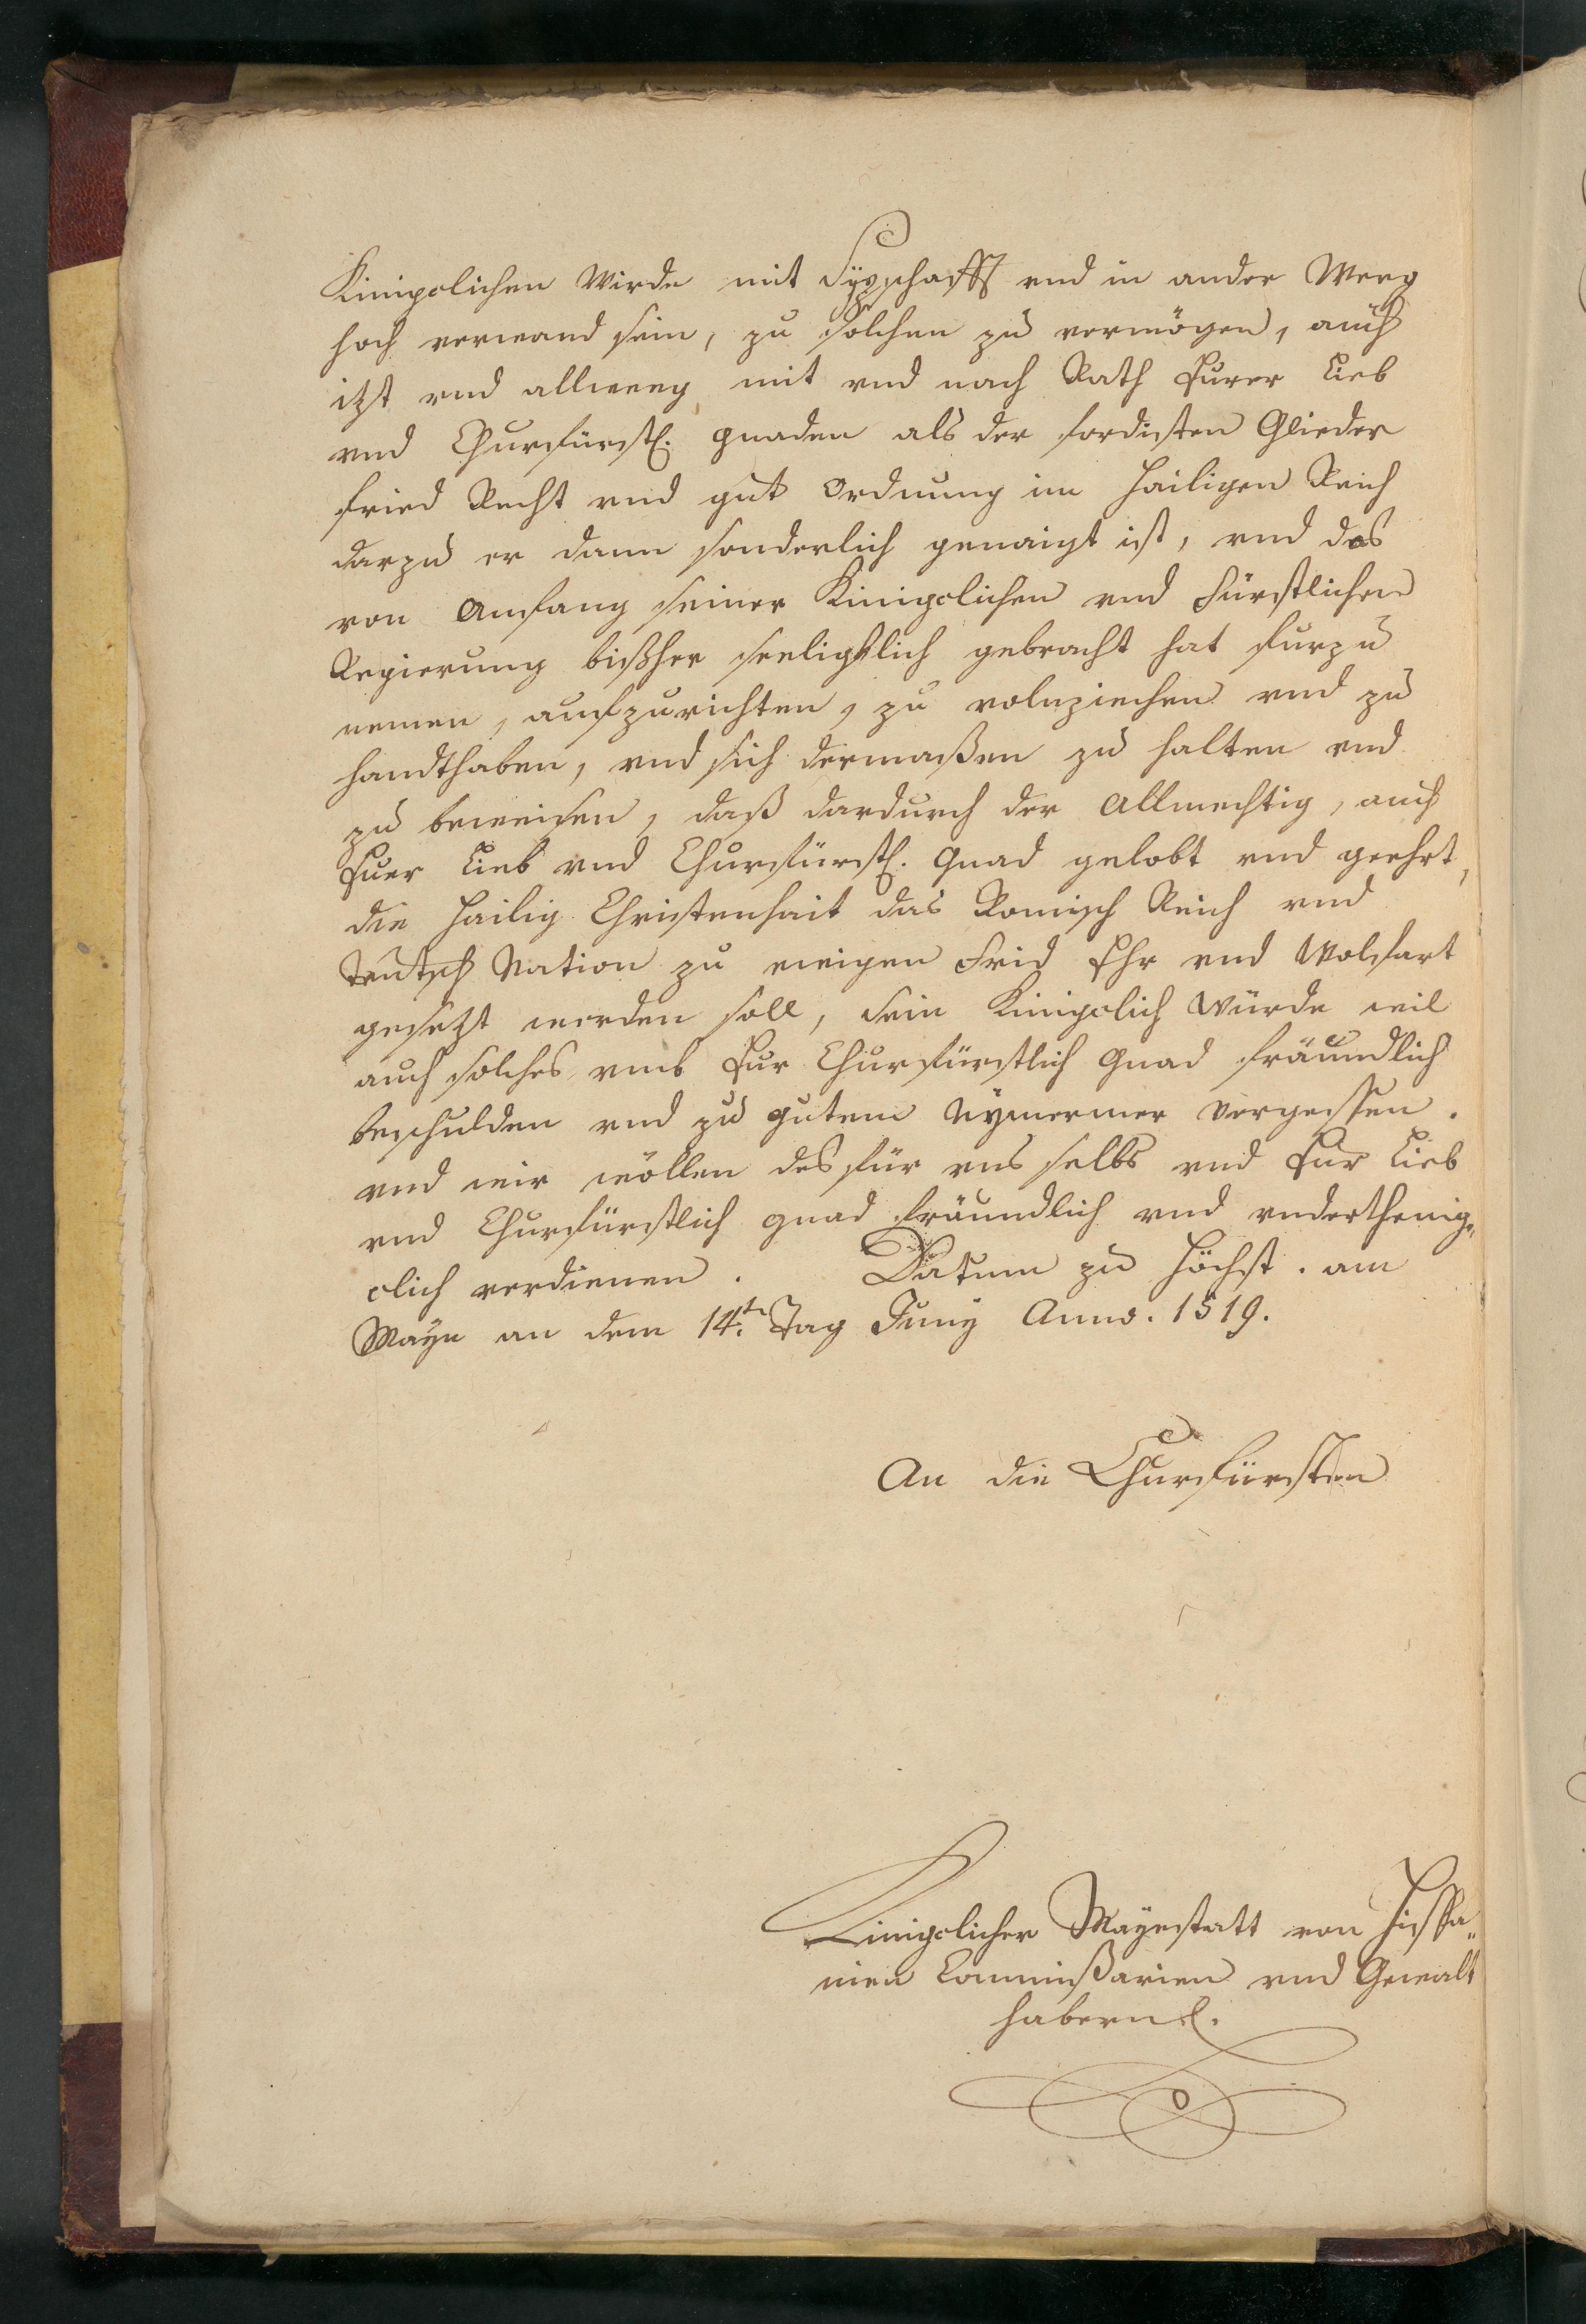 Kinigclichen Wirde mit Sypschafft vnd in ander Weeg
hoch verwand sein, zu solchen zu vermögen, auch
itzt vnd allweeg mit vnd nach Rath Eurer Lieb
vnd Churfürstl. gnaden als der fordisten Glieder
fried Recht vnd gut Ordnung im Hailigen Reich
darzu er dann sonderlich genaigt ist, vnd das
von Anfang seiner Kinigclichen vnd Fürstlichen
Regierung bißher seeligklich gebracht hat furzu
nemen, aufzurichten, zu volnziechen vnd zu
handthaben, vnd sich dermaßen zu halten vnd
zu beweisen, daß dardurch der Allmechtig, auch
Euer Lieb vnd Churfürstl. Gnad gelobt vnd geehrt,
die Hailig Christenhait das Romisch Reich vnd
Teutsch Nation zu ewigen Frid Ehr vnd Wolfart
gesetzt werden soll, sein Kinigclich Würde wil
auch solches vmb Eur Churfürstlich Gnad fräundlich
beschulden vnd zu gutem Nymermer vergessen.
vnd wir wöllen des für vns selbs vnd Eur Lieb
vnd Churfürstlich gnad fräundlich vnd vnderthenig„
clich verdienen. Datum zu Höchst. am
Mayn an dem 14.tn Tag Juny Anno. 1519.
An die Churfürsten
Kinigclicher Mayestatt von Hispa„
nien Commißarien vnd Gewalt
habern